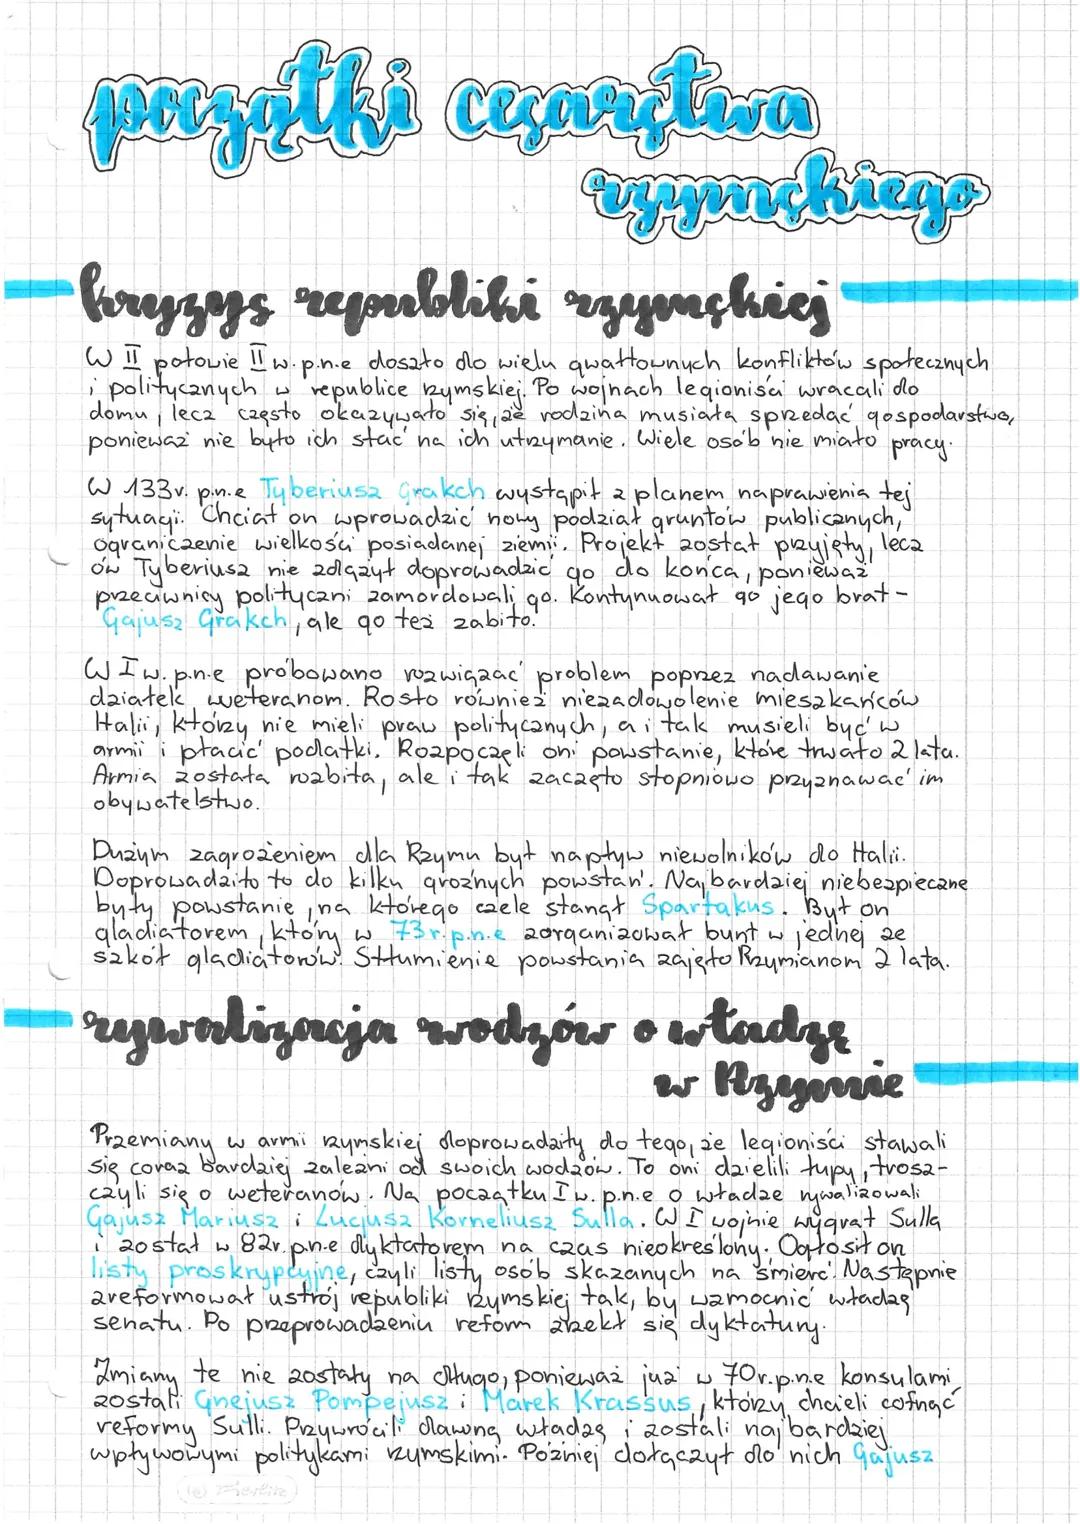 początki cesarstwa
rzymskiego
kryzys republiki rzymskiej
W II połowie II w. p.n.e doszło do wielu gwałtownych konfliktów społecznych
i politycznych w republice rzymskiej. Po wojnach legioniści wracali do
domu, lecz często okazywało się, że rodzina musiała sprzedać gospodarstwo,
ponieważ nie było ich stać na ich utrzymanie. Wiele osób nie miało pracy.
W 133r. p.n.e Tyberiusz Grakch wystąpił z planem naprawienia tej
sytuacji. Chciał on wprowadzić nowy podział gruntów publicznych,
ograniczenie wielkości posiadanej ziemii. Projekt został przyjęty, lecz
ów Tyberiusz nie zdążył doprowadzić go do końca, ponieważ
przeciwnicy polityczni zamordowali go. Kontynuował go jego brat -
Gajusz Grakch, ale go też zabito.
W I w. p.n.e próbowano rozwiązać problem poprzez nadawanie
działek weteranom. Rosło również niezadowolenie mieszkańców
Italii, którzy nie mieli praw politycznych, a i tak musieli być w
armii i płacić podatki. Rozpoczęli oni powstanie, które trwało 2 lata.
Armia została rozbita, ale i tak zaczęto stopniowo przyznawać im
obywatelstwo.
Dużym zagrożeniem dla Rzymu był napływ niewolników do Italii.
Doprowadziło to do kilku groźnych powstań. Najbardziej niebezpieczne
były powstanie, na którego czele stanął Spartakus. Był on
gladiatorem, który w 73r.p.n.e zorganizował bunt w jednej ze
szkół gladiatorów. Stłumienie powstania zajęło Rzymianom 2 lata.
rywalizacja wodzów o władzę
w Rzymie
Przemiany w armii rzymskiej doprowadziły do tego, że legioniści stawali
się coraz bardziej zależni od swoich wodzów. To oni dzielili łupy, trosz-
czyli się o weteranów. Na początku I w. p.n.e o władze rywalizowali
Gajusz Mariusz i Lucjusz Korneliusz Sulla. W I wojnie wygrał Sulla
i został w 82r. p.n.e dyktatorem na czas nieokreślony. Ogłosił on
listy proskrypcyjne, czyli listy osób skazanych na śmierć. Następnie
zreformował ustrój republiki rzymskiej tak, by wzmocnić władzę
senatu. Po przeprowadzeniu reform zrzekł się dyktatury.
Zmiany te nie zostały na długo, ponieważ już w 70r.p.n.e konsulami
zostali Gnejusz Pompejusz i Marek Krassus, którzy chcieli cofnąć
reformy Sulli. Przywrócili dawną władzę i zostali najbardziej
wpływowymi politykami rzymskimi. Później dołączył do nich Gajusz